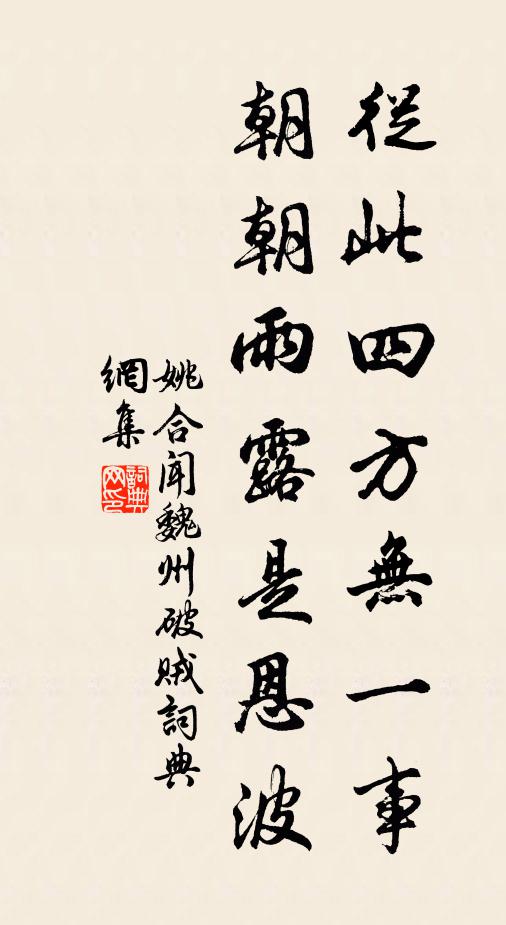 從此四方無一事
朝朝雨露是恩波
姚合聞魏州破賊詞典
網集
詞典
网印